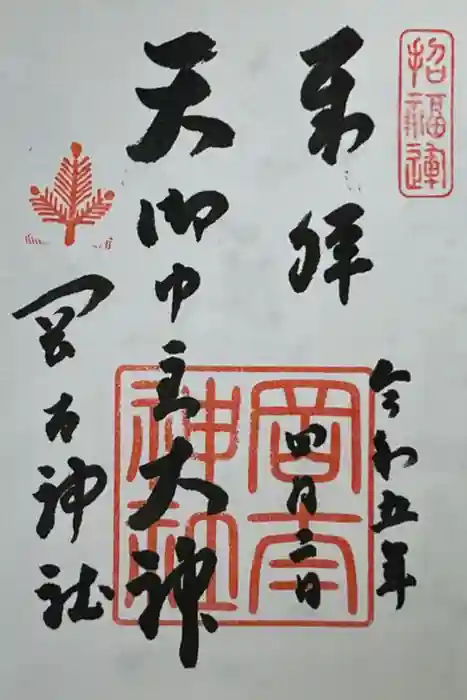 招福運
奉拝
令和五年
四月二日
天御中主大神
岡太神社
岡太神社